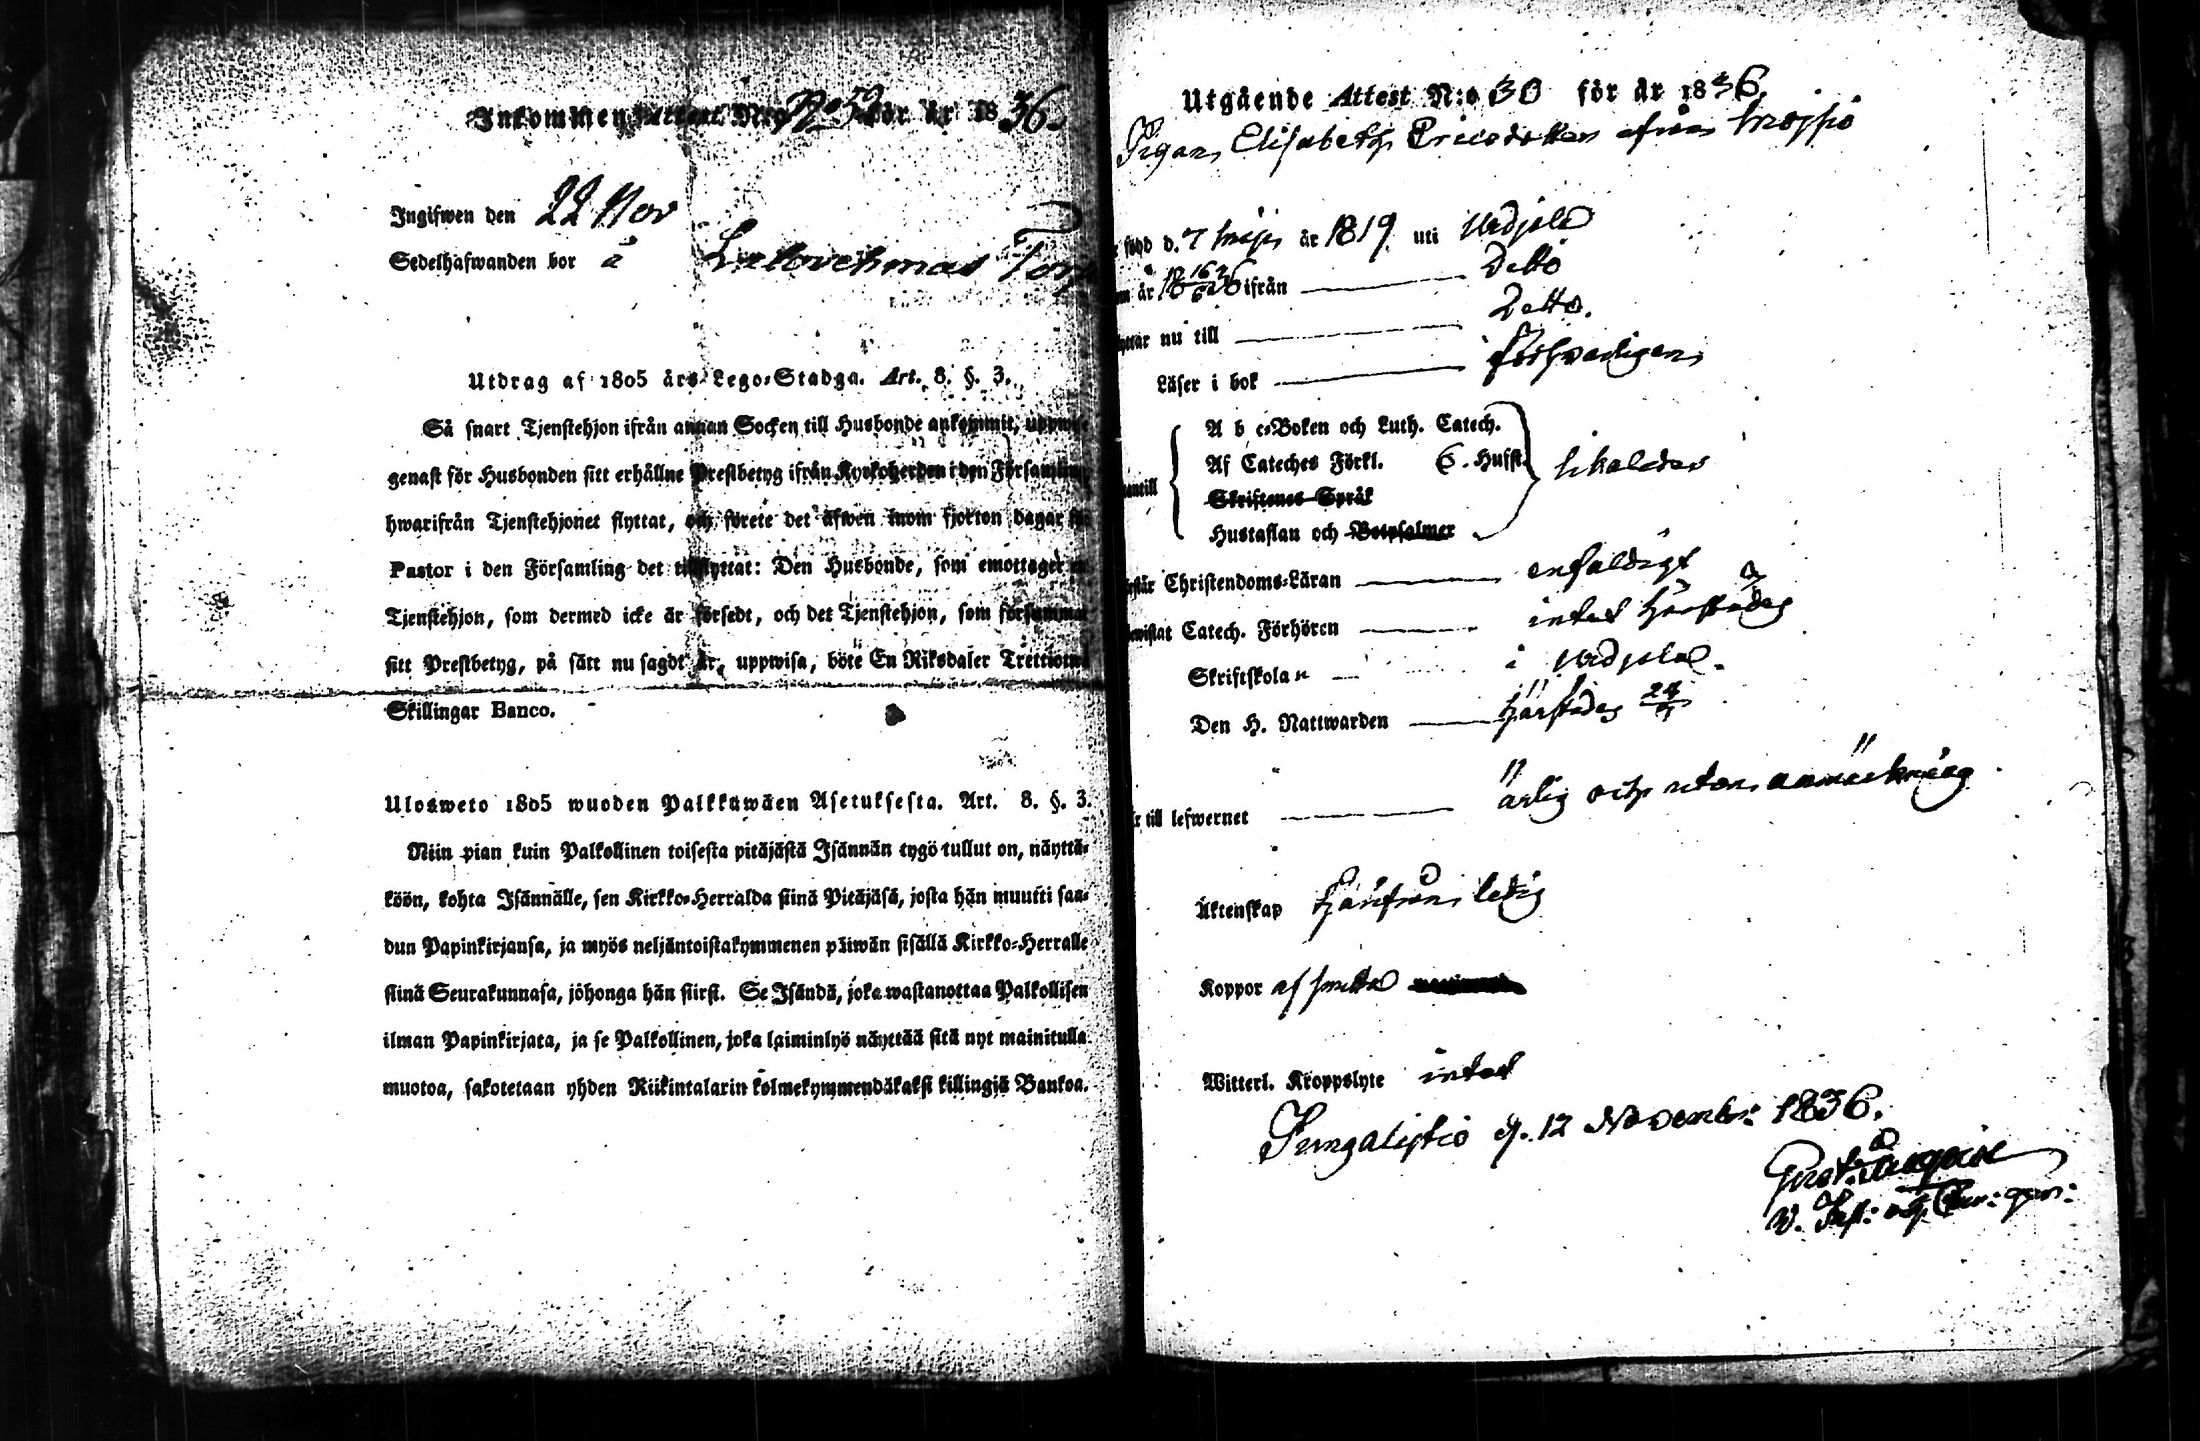 Inkommen Attest N:o 52 för år 1836.
Ingifwen den 22 Nov
Sedelhafwanden bor å Torp
Utdrag af 1805 års Lego-Stadga. Art. 8. §. 3.
Så snart Tjenstehjon ifrån annan Socken till Husbonde ankommit, uppwise
genast för Husbonden sitt erhållne Prestbetyg ifrån Kyrkoherden i den Församling
hwarifrån Tjenstehjonet flyttat, och förete det äfwen inom fjorton dagar
Pastor i den Församling det tillflyttat: Den Husbonde, som emottager
Tjenstehjon, som dermed icke är försedt, och det Tjenstehjon, som försummar
sitt Prestbetyg, på sätt nu sagdt är, uppwisa, böte En Riksdaler Trettiotwå
Skillingar Banco.
Ulosweto 1805 wuoden Palkkawäen Asetuksesta. Art. 8. §. 3.
Niin pian kuin Palkollinen toisesta pitäjästä Isännän tygö tullut on, näyttä-
köön, kohta Isännälle, sen Kirkko-Herralda siinä Pitäjäsä, josta hän muutti saa-
dun Papinkirjansa, ja myös neljäntoistakymmenen päiwän sisällä Kirkko-Herralle
siinä Seurakunnasa, johonga hän siirsi. Se Isändä, joka wastanottaa Palkollisen
ilman Papinkirjata, ja se Palkollinen, joka laiminlyö näyttää sitä nyt mainitulla
muotoa, sakotetaan yhden Riikintalarin kolmekymmendäkaksi killingiä Bankoa.
Utgående Attest N:o 30 för år 1836.
Pigan Elisabeth Ericsdotter ifrån
född d. 7 Maji år 1819 uti Urdjala
år ifrån Ditto
flyttar nu till Ditto.
Läser i bok försvarligen
A b c-Boken och Luth. Catech.
Af Cateches Förkl. 6. Hufst.
utantill likaledes
Skriftenes Språk
Hustaflan och Botpsalmer
Förstår Christendoms-Läran enfaldigt
Bewistat Catech. Förhören intet härstädes
Skriftskolan i Urdjala.
Den H. Nattwarden härstädes 24
Är till lefwernet ärlig och utan anmärkning
Äktenskap härifrån ledig
Koppor af smitta
Witterl. Kroppslyte intet
d. 12 November 1836.
Gust.